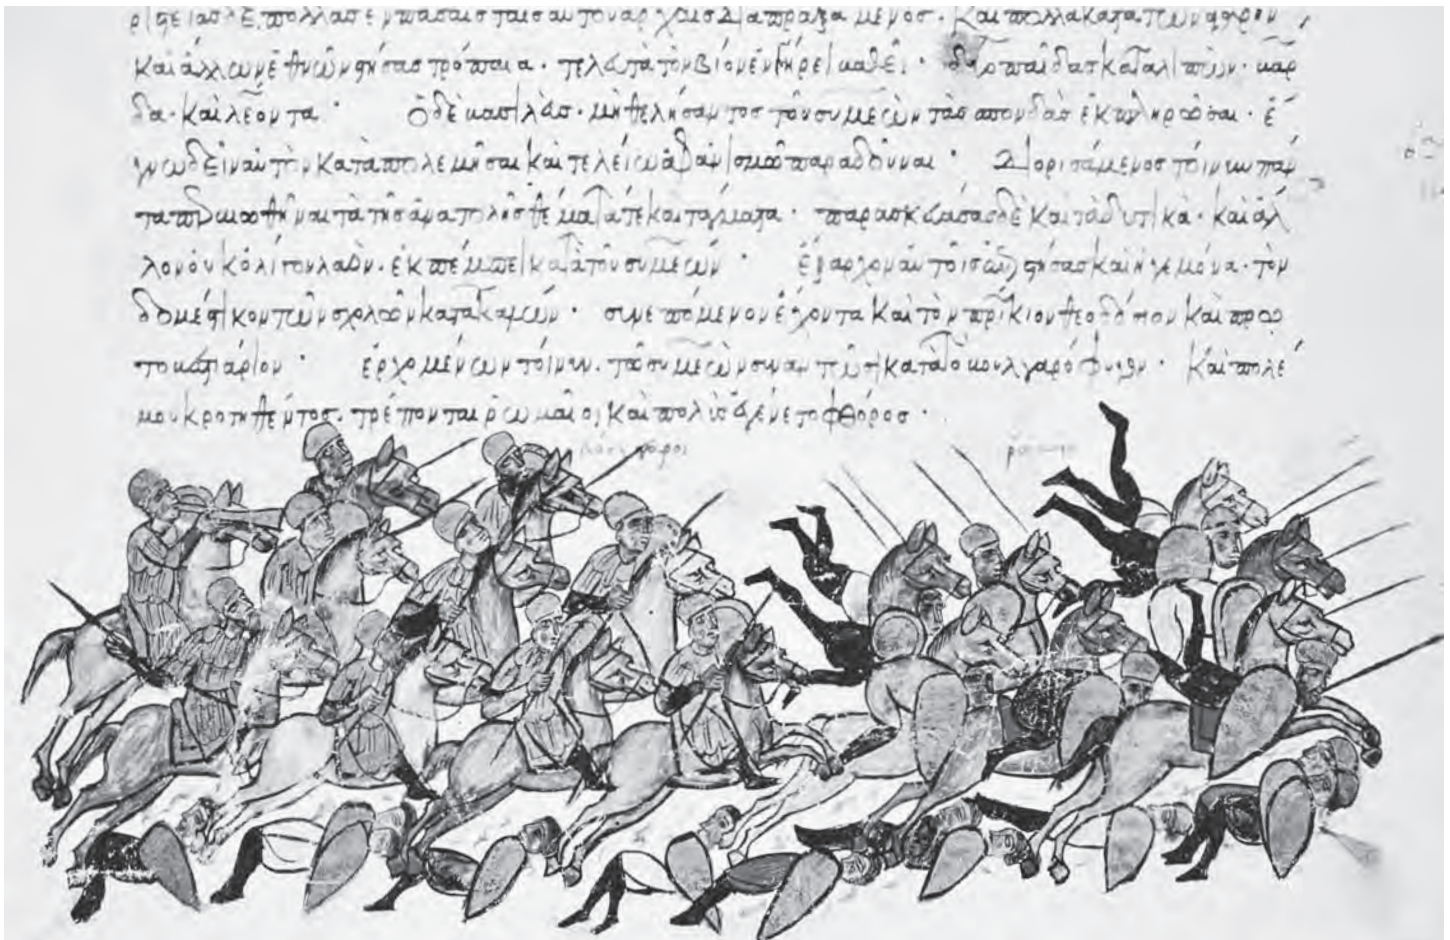 πολλὰς ἐν πάσαις ταῖς αὐτοῦ ἀρχαῖς διαπραξάμενος· καὶ πολλὰ κατὰ τῶν
καὶ ἄλλων ἐθνῶν στήσας τρόπαια· τελευτᾶ τὸν βίον ἐν γήρει· δύο παῖδας καταλιπών· βάρ
δα· καὶ λέοντα· Ὁ δὲ βασιλεὺς· μὴ θελήσαντος τοῦ συμεὼν τὰς σπονδὰς ἐκπληρῶσαι· ἔ
γνω δεῖν αὐτὸν καταπολεμῆσαι καὶ τελείω ἀφανισμῶ παραδοῦναι· Διορισάμενος τοίνυν πάν
τα τὰ τῆς ἀνατολῆς θέματά τε καὶ τάγματα· παρασκευάσας δὲ καὶ τὰ δυτικὰ· καὶ ἄλ
λον οὐκ ὀλίγον λαὸν· ἐκπέμπει κατὰ τοῦ συμεών· ἔξαρχον αὐτοῖς καὶ ἡγεμόνα· τὸν
δομέστικον τῶν σχολῶν κατακαλών· συνεπόμενον ἔχοντα καὶ τὸν πρίκιον θεοδόσιον καὶ πρω
τοβεστιάριον· ἐρχομένων τοίνυν· τοῦ συμεὼν συναντῶσι κατὰ τὸ βουλγαρόφυγον· καὶ πολέ
μου κροτηθέντος· τρέπονται ῥωμαῖοι καὶ πολὺς ἐγένετο φθόρος·